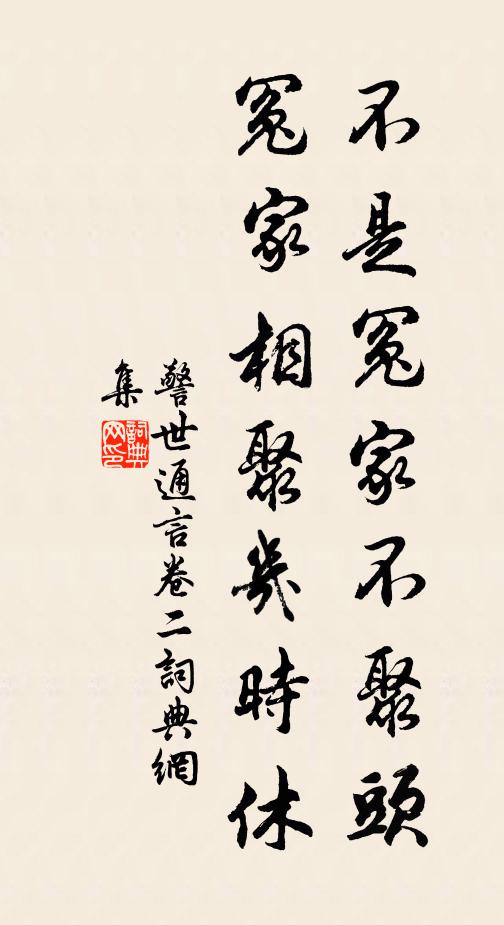 不是冤家不聚頭
冤家相聚幾時休
警世通言卷二詞典網
集
詞典網印